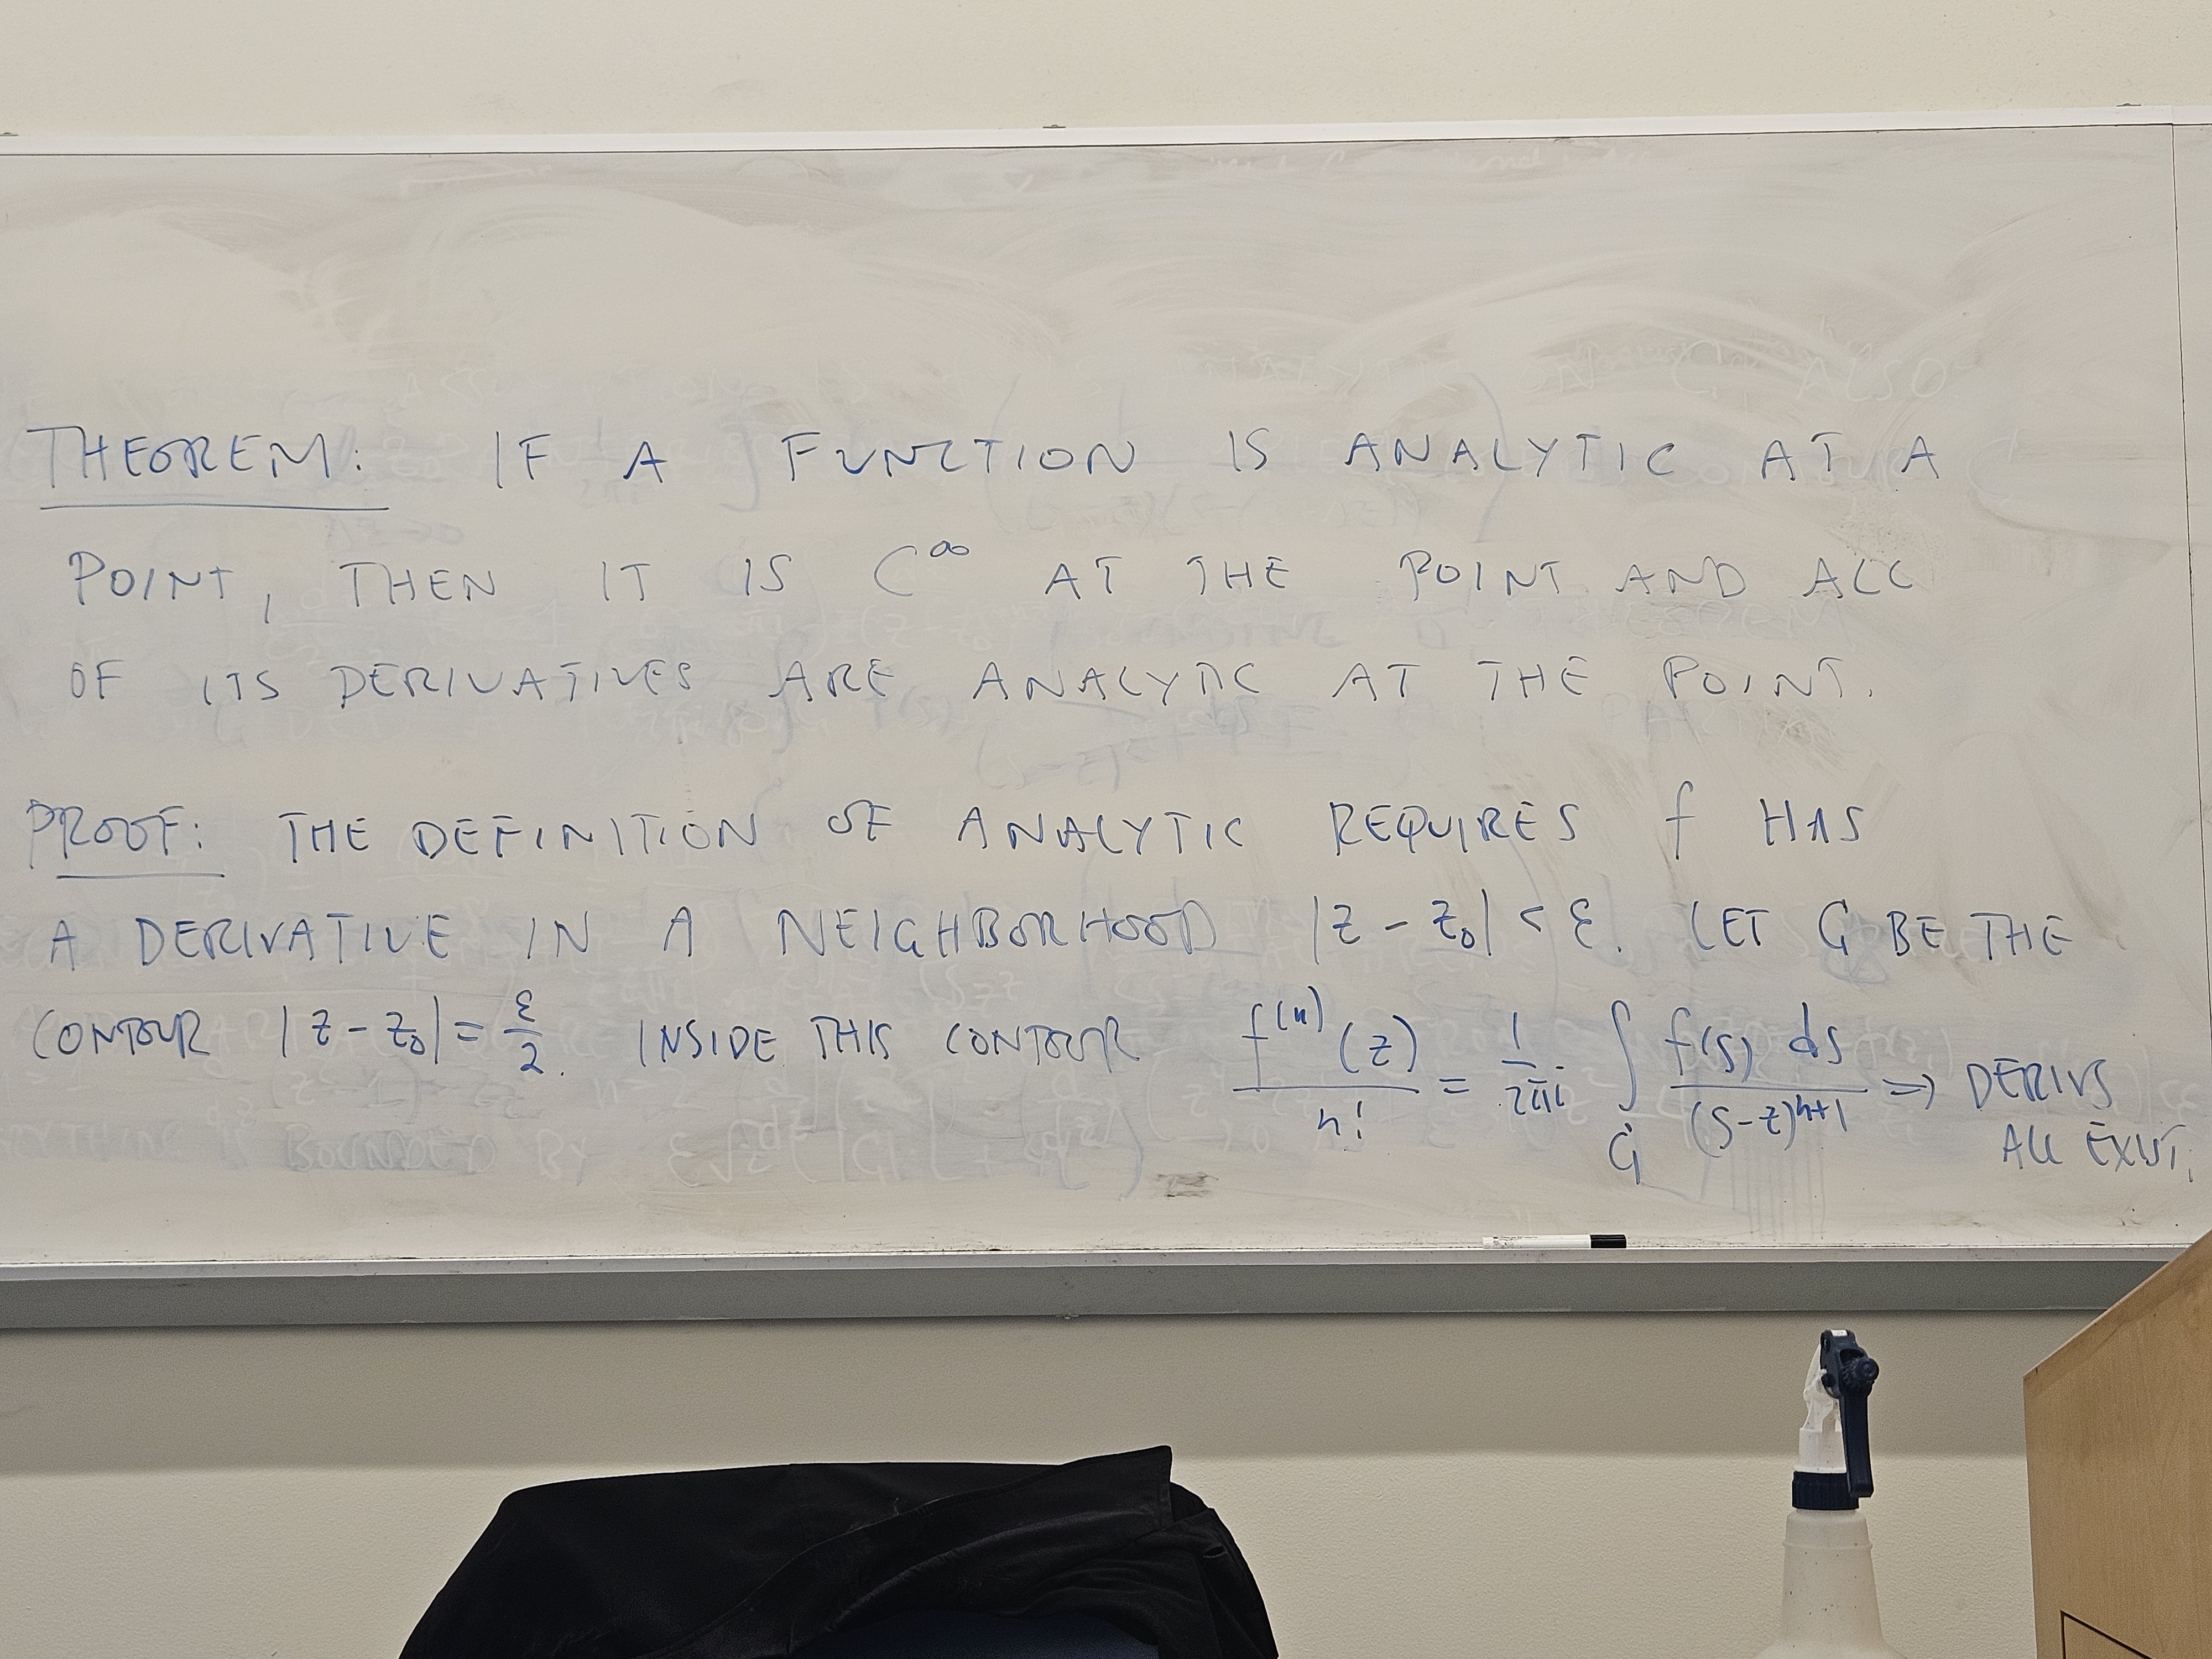 THEOREM: IF A FUNCTION IS ANALYTIC AT A
POINT, THEN IT IS C^∞ AT THE POINT AND ALL
OF ITS DERIVATIVES ARE ANALYTIC AT THE POINT.
PROOF: THE DEFINITION OF ANALYTIC REQUIRES f HAS
A DERIVATIVE IN A NEIGHBORHOOD |z - z₀| < ε. LET G BE THE
CONTOUR |z - z₀| = ε/2. INSIDE THIS CONTOUR f^(n)(z)/n! = 1/2πi ∫_G f(s) ds/(s-z)^(n+1) ⇒ DERIVS
ALL EXIST.